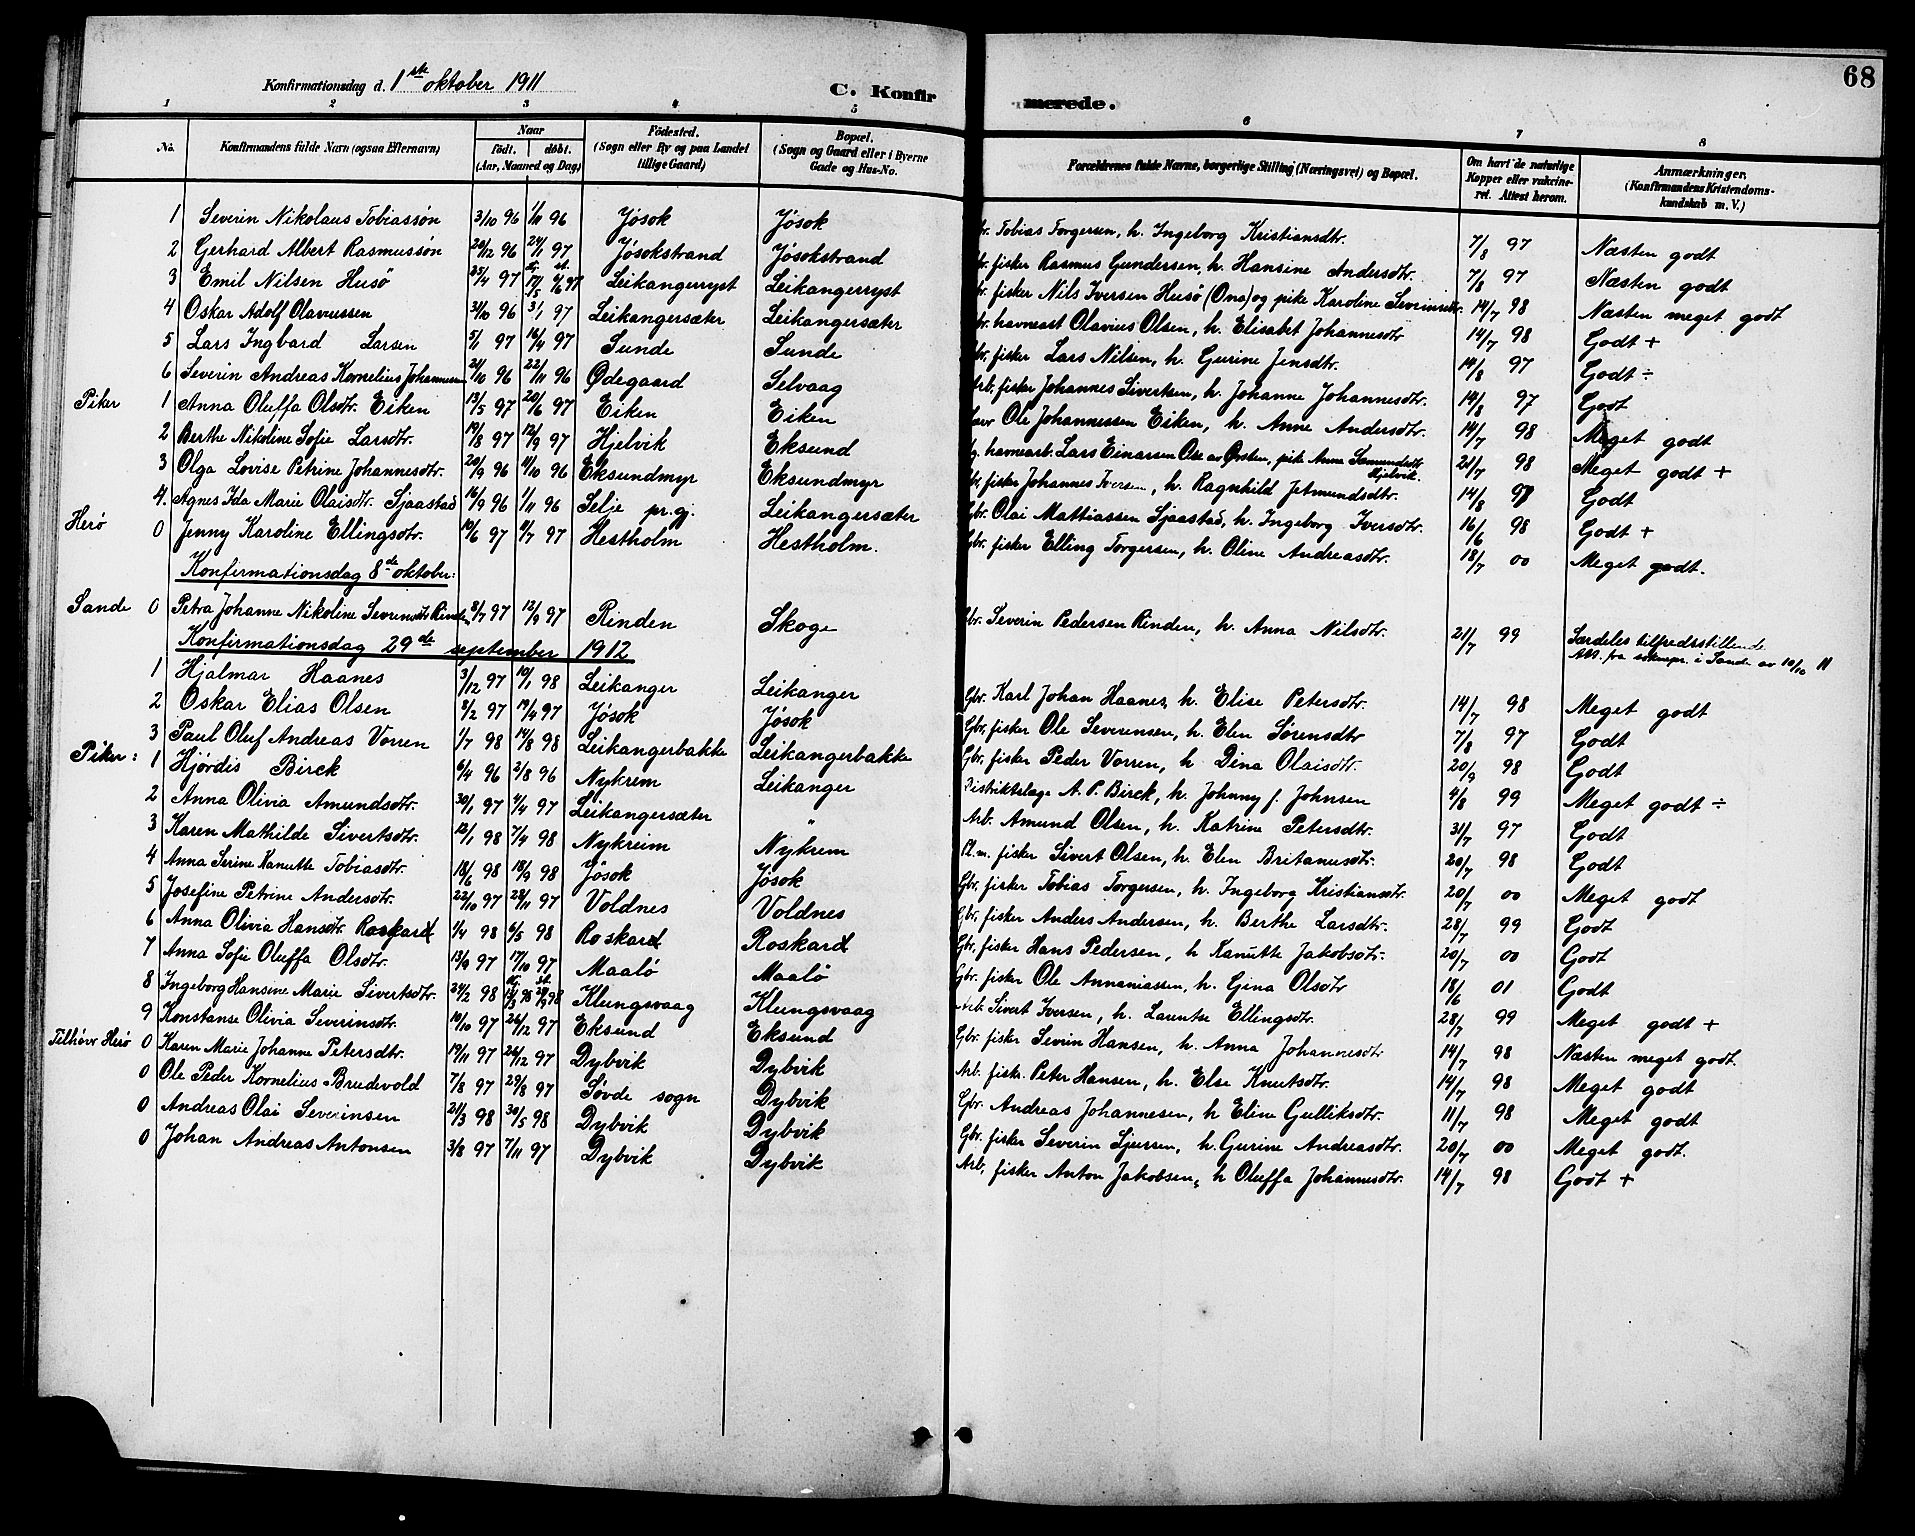 68
Konfirmationsdag d. 1ste oktober 1911 C. Konfirmerede.
1 2 3 4 5 6 7 8
No. Konfirmandens fulde Navn (ogsaa Efternavn) Naar födt. döbt. (Aar, Maaned og Dag) Födested. (Sogn eller By og paa Landet tillige Gaard) Bopæl. (Sogn og Gaard eller i Byerne Gade og Hus-No. Forældrenes fulde Navne, borgerlige Stilling (Næringsvei) og Bopæl. Om havt de naturlige Kopper eller vakcineret. Attest herom. Anmærkninger. (Konfirmandens Kristendomskundskab m. V.)
1 Severin Nikolaus Tobiassøn 3/10 96 1/11 96 Jøsok Jøsok Gbr. Tobias Torgersen, h. Ingeborg Kristiansdtr. 7/8 97 Næsten godt
2 Gerhard Albert Rasmussøn 20/12 96 24/1 97 Jøsokstrand Jøsokstrand Gbr. fisker Rasmus Gundersen, h. Hansine Andersdtr. 7/8 97 Næsten godt
3 Emil Nilsen Husö 25/4 97 Leikangerryst Leikangerryst Gbr. fisker Nils Iversen Husø (Ona) og pike Karoline Severinsdtr 14/7 98 Næsten meget godt
4 Oskar Adolf Olavussen 31/10 96 3/1 97 Leikangersæter Leikangersæter Gbr. havnearb Olavius Olsen, h. Elisabet Johannesdtr 14/7 98 Godt +
5 Lars Ingbard Larsen 5/1 97 16/4 97 Sunde Sunde Gbr. fisker Lars Nilsen, h. Gurine Jensdtr. 14/8 97 Godt ÷
6 Severin Andreas Kornelius Johannessen 21/10 96 22/11 96 Ødegaard Selvaag Arb. fisker Johannes Sivertsen, h. Johanne Johannesdtr. 14/8 97 Godt
Piker 1 Anna Oluffa Olsdtr. Eiken 13/5 97 20/6 97 Eiken Eiken Ole Johannessen Eiken, h. Anne Andersdtr. 14/7 98 Meget godt
2 Berthe Nikoline Sofie Larsdtr. 19/8 97 12/9 97 Hjelvik Eksund havnearb. Lars Einarsen Ose av Ørsten, pike Anne Samundsdtr Hjelvik. 21/7 98 Meget godt +
3 Olga Lovise Petrine Johannesdtr. 20/9 96 4/10 96 Eksundmyr Eksundmyr Gbr. fisker Johannes Iversen, h. Ragnhild Jetmundsdtr. 14/8 97 Godt
4. Agnes Ida Marie Olaisdtr. Sjaastad 16/9 96 1/11 96 Selje pr.gj. Leikangersæter Gbr. Olai Mattiassen Sjaastad, h. Ingeborg Iversdtr. 16/6 98 Godt +
Herø 0 Jenny Karoline Ellingsdtr. 19/6 97 11/7 97 Hestholm Hestholm. Gbr. fisker Elling Torgersen, h. Oline Andreasdtr. 18/7 00 Meget godt.
Konfirmationsdag 8de oktober:
Sande 0 Petra Johanne Nikoline Severinsdtr Rinden 3/7 97 12/9 97 Rinden Skoge Gbr. Severin Pedersen Rinden, h. Anna Nilsdtr. 21/7 99 Særdeles tilfredsstillende
Att. fra soknepr. i Sande av 10/10 11
Konfirmationsdag 29de september 1912
1 Hjalmar Haanes 3/12 97 10/1 98 Leikanger Leikanger Gbr. Karl Johan Haanes, h. Elise Petersdtr. 14/7 98 Meget godt
2 Oskar Elias Olsen 8/2 97 19/4 97 Jøsok Jøsok Gbr, fisker Ole Severensen, h. Elen Sørensdtr 7/8 97 Godt
3 Paul Oluf Andreas Vorren 1/7 98 14/8 98 Leikangerbakke Leikangerbakke Gbr. fisker Peder Vorren, h Dina Olaisdtr. 20/9 98 Godt
Piker: 1 Hjördis Birck 6/4 96 2/8 96 Nykrem Leikanger Distriktslæge A. P. Birck, h. Johnny f. Johnsen 4/8 99 Meget godt ÷
2 Anna Olivia Amundsdtr. 30/1 97 4/4 97 Leikangersæter " Arb. Amund Olsen, h. Katrine Petersdtr. 31/7 97 Godt
3 Karen Mathilde Sivertsdtr. 12/1 98 7/4 98 Nykreim Nykrem Pl.m. fisker Sivert Olsen, h. Elen Britanusdtr. 20/7 98 Godt
4 Anna Serine Kanutte Tobiasdtr. 18/6 98 18/9 98 Jøsok Jøsok Gbr. fisker Tobias Torgersen, h. Ingeborg Kristiansdtr. 20/7 00 Meget godt
5 Josefine Petrine Andersdtr. 22/10 97 28/11 97 Voldnes Voldnes Gbr. fisker Anders Andersen, h. Berthe Larsdtr. 28/7 99 Godt
6 Anna Olivia Hansdtr. Roskard 1/4 98 6/5 98 Roskard Roskard Gbr. fisker Hans Pedersen, h. Kanutte Jakobsdtr. 20/7 00 Godt
7 Anna Sofie Oluffa Olsdtr. 13/9 97 17/10 97 Maalø Maalø Gbr. fisker Ole Annaniassen, h. Gina Olsdtr 18/6 01 Godt
8 Ingeborg Hansine Marie Sivertsdtr. 24/2 98 Klungsvaag Klungsvaag Arb. Sivert Iversen, h. Larentse Ellingsdtr. 28/7 99 Meget godt +
9 Konstanse Olivia Severinsdtr. 10/10 97 26/12 97 Eksund Eksund Gbr. fisker Sevrin Hansen, h. Anna Johannesdtr 14/7 98 Næsten meget godt.
Tilhører Herø 0 Karen Marie Johanne Petersdtr. 19/11 97 26/12 97 Dybvik Dybvik Arb. fisker. Peter Hansen, h. Else Knutsdtr. 14/7 98 Meget godt
0 Ole Peder Kornelius Brudevold 7/8 97 29/8 97 Søvde sogn Dybvik Gbr. Andreas Johannesen, h Eline Gulliksdtr. 11/7 98 Meget godt
0 Andreas Olai Severinsen 21/3 98 30/5 98 Dybvik Dybvik Gbr. fisker Severin Sjursen, h. Gurine Andreasdtr. 20/7 00 Meget godt.
0 Johan Andreas Antonsen 3/8 97 7/11 97 Dybvik Dybvik Arb, fisker Anton Jakobsen, h Oluffa Johannesdtr. 14/7 98 Godt +